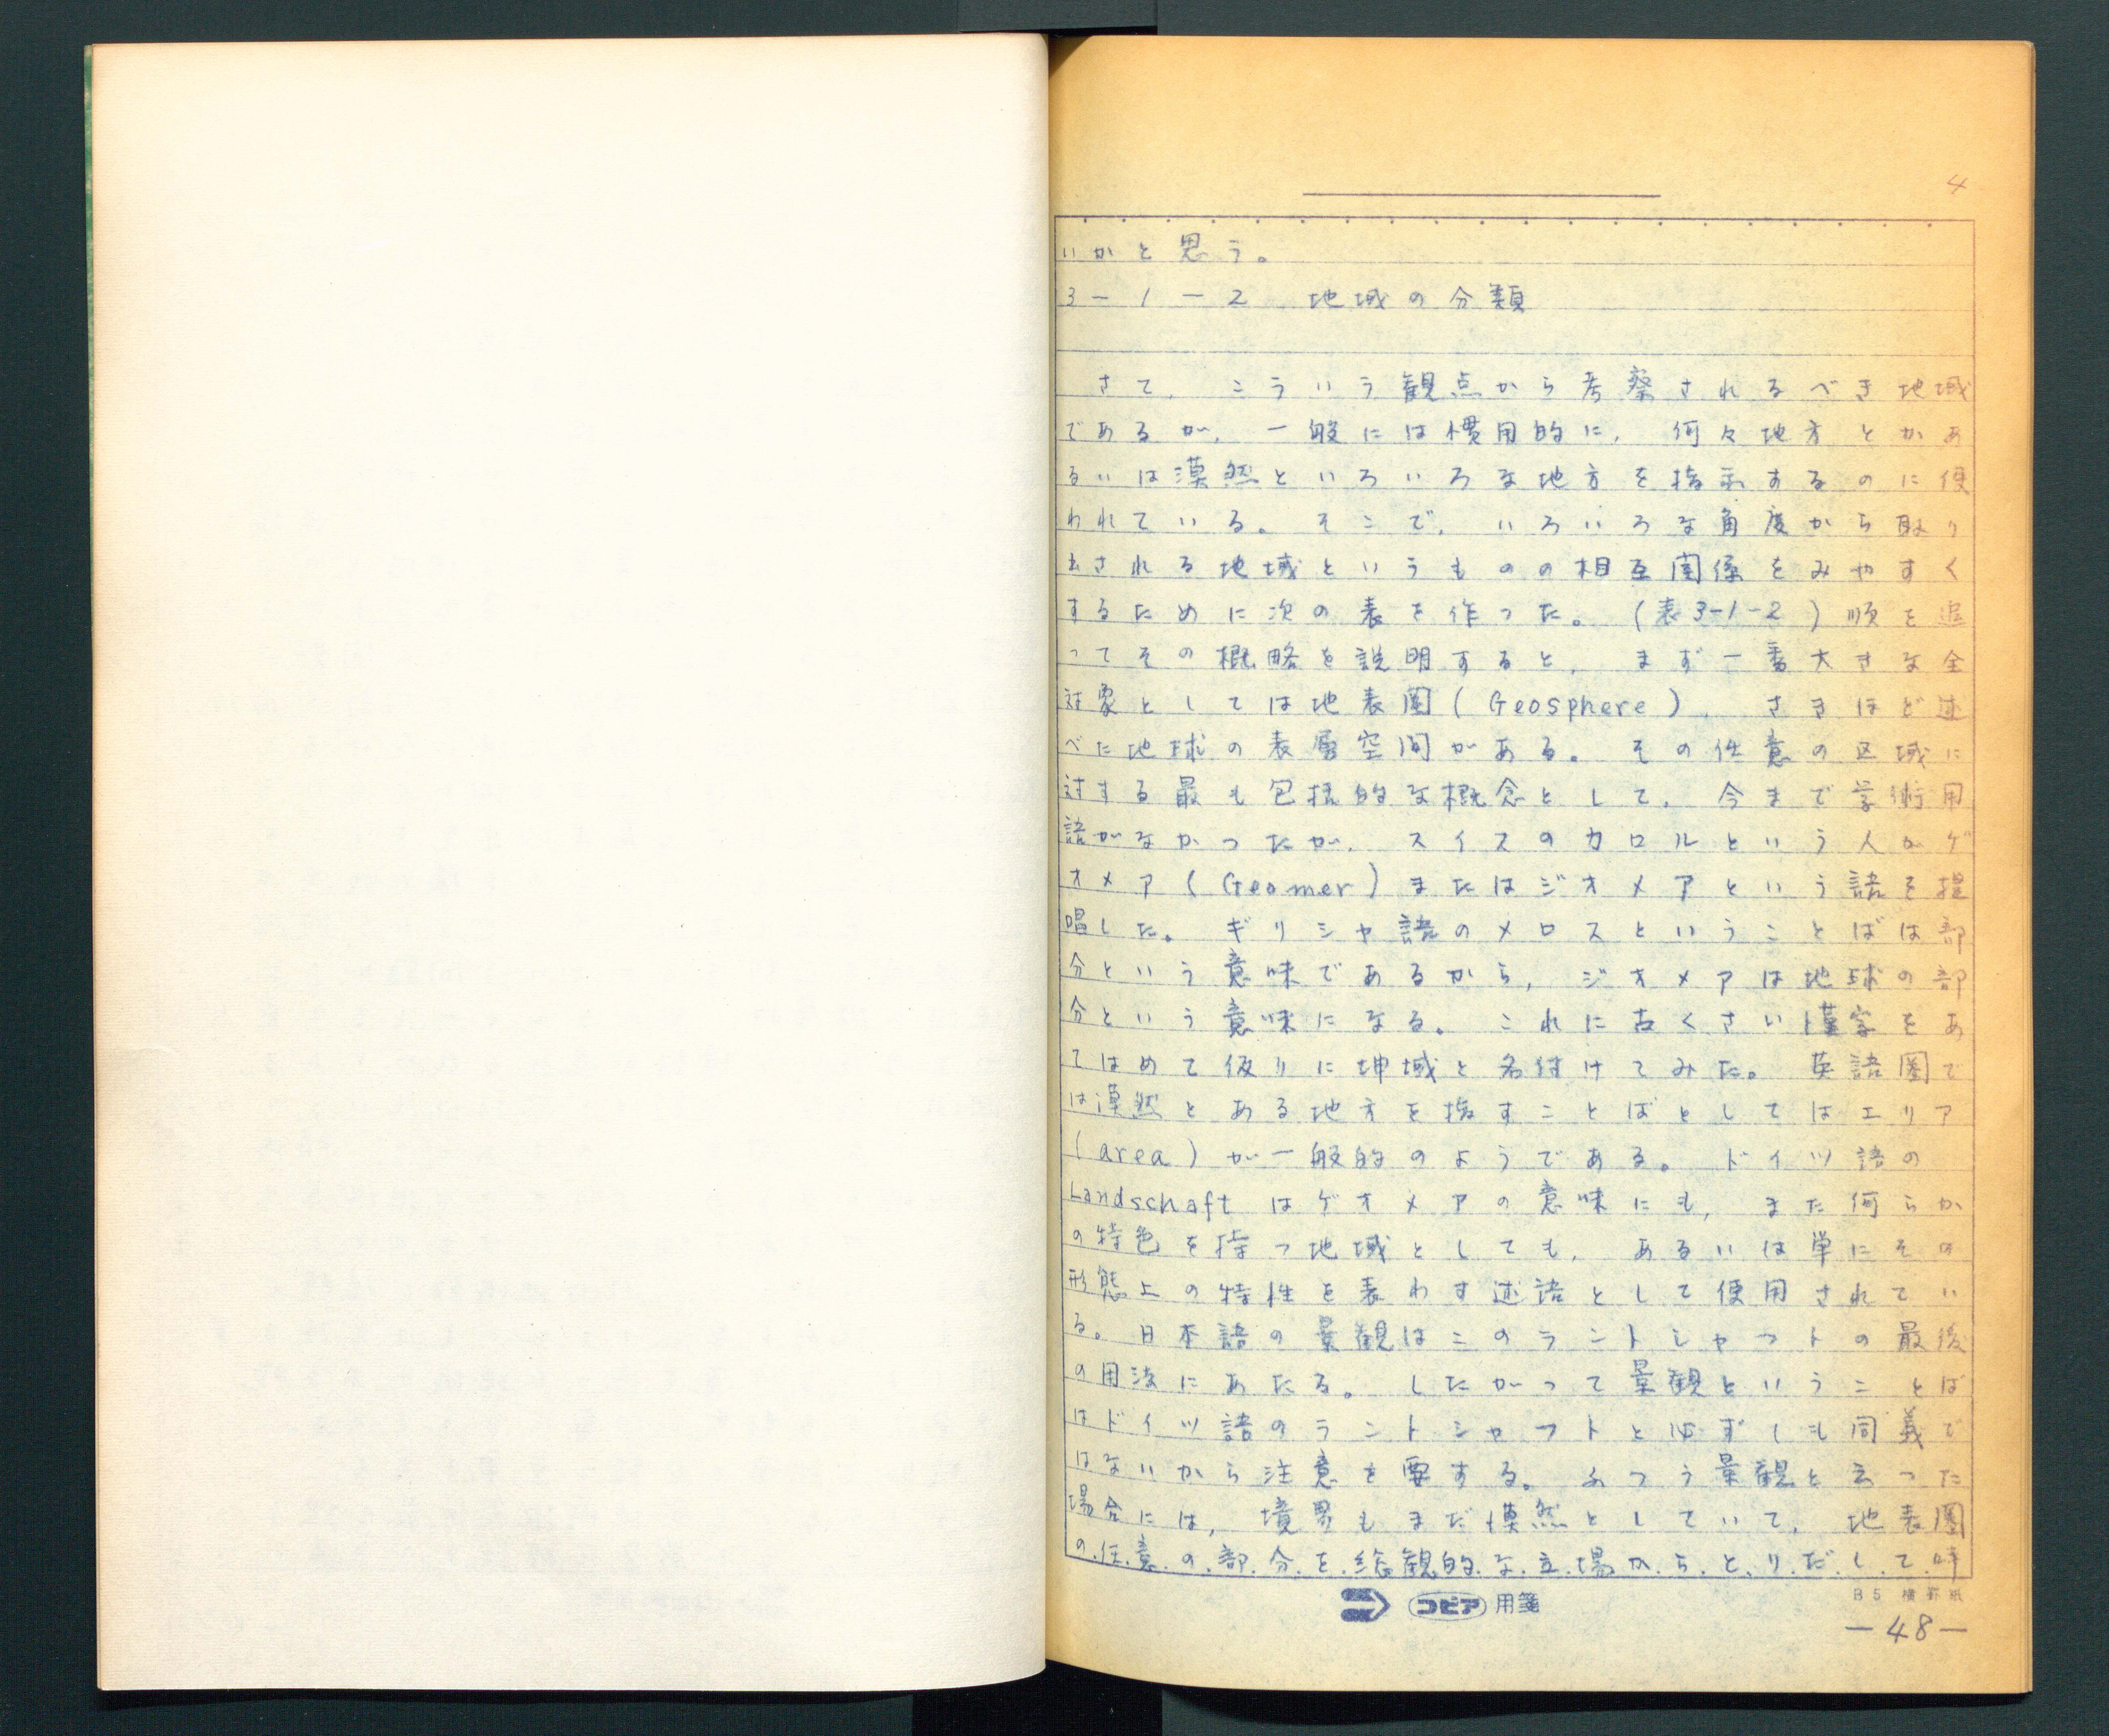 4
いかと思う。
3-1-2 地域の分類
さて，こういう観点から考察されるべき地域
であるが，一般には慣用的に，何々地方とかあ
るいは漠然といろいろな地方を指示するのに使
われている。そこで，いろいろな角度から取り
出される地域というものの相互関係をみやすく
するために次の表を作った。(表3-1-2)順を追
ってその概略を説明すると，まず一番大きな全
対象としては地表圏(Geosphere)，さきほど述
べた地球の表層空間がある。その任意の区域に
対する最も包括的な概念として，今まで学術用
語がなかったが，スイスのカロルという人がゲ
オメア(Geomer)またはジオメアという語を提
唱した。ギリシャ語のメロスということばは部
分という意味であるから，ジオメアは地球の部
分という意味になる。これに古くさい漢字をあ
てはめて仮りに坤域と名付けてみた。英語圏で
は漠然とある地方を指すことばとしてはエリア
(area)が一般的のようである。ドイツ語の
Landschaftはゲオメアの意味にも，また何らか
の特色を持つ地域としても，あるいは単にその
形態上の特性を表わす述語として使用されてい
る。日本語の景観はこのラントシャフトの最後
の用法にあたる。したがって景観ということば
はドイツ語のラントシャフトと必ずしも同義で
はないから注意を要する。ふつう景観と云った
場合には，境界もまだ漠然としていて，地表圏
の任意の部分を総観的な立場からとりだして時
コピア 用箋
B5 横罫紙
-48-